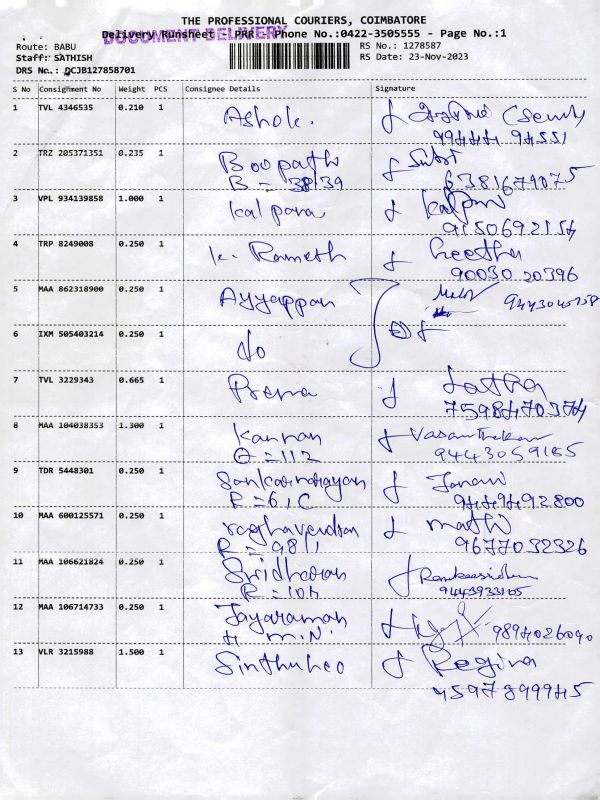 THE PROFESSIONAL COURIERS, COIMBATORE
DOCUMENT DELIVERY
Delivery Runsheet - PRR - Phone No.:0422-3505555 - Page No.:1
Route: BABU
RS No.: 1278587
Staff: SATHISH
RS Date: 23-Nov-2023
DRS No.: DCJB127858701
S No Consignment No Weight PCS Consignee Details Signature
1 TVL 4346535 0.210 1 Ashok.
99444 94551
2 TRZ 205371351 0.235 1 Boopathi
6381679075
3 VPL 934139858 1.000 1 Kalpana
9150692154
4 TRP 8249008 0.250 1 K. Ramesh Geetha
90030 20396
5 MAA 862318900 0.250 1 Ayyappan
6 IXM 505403214 0.250 1 do
7 TVL 3229343 0.665 1 Prema Latha
7598470374
8 MAA 104038353 1.300 1 Kannan
9443059165
9 TDR 5448301 0.250 1 Sankaranarayan
R=6,C 9449492800
10 MAA 600125571 0.250 1 Raghavendran mathi
9677032326
11 MAA 106621824 0.250 1 Sridharan
R=104
12 MAA 106714733 0.250 1 Jayaraman 9894026090
13 VLR 3215988 1.500 1 Regina